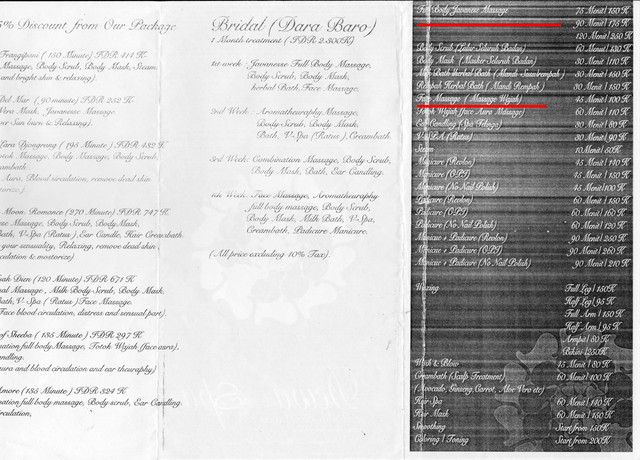 5% Discount from Our Package
Frangipani ( 150 Minute) IDR 414 K
Massage, Body Scrub, Body Mask, Steam
and bright skin & relaxing)
Del Mar (90 minute) IDR 252 K
Vera Mask, Javanesse Massage
Sun burn & Relaxing).
Body Scrub,
Aura, Blood circulation, remove dead skin
Moon Romance (270 Minute) IDR 747 K
Massage, Body Scrub, Body Mask,
Bath, V-Spa (Ratus), Ear Candle, Hair Creambath
your sensuality, Relaxing, remove dead skin,
& mosterize)
Dien (120 Minute) IDR 671 K
Massage, Milk Body Scrub, Body Mask,
Bath, V-Spa (Ratus) Face Massage.
Face blood circulation, distress and sensual part).
of Sheeba ( 135 Minute ) IDR 297 K
full body Massage, Totok Wajah (face aura),
and blood circulation and ear theuraphy)
Amore (135 Minute) IDR 324 K
full body massage, Body scrub, Ear Candling
Bridal (Dara Baro)
1 Month treatment ( IDR 2.300K)
1st week : Javanesse Full Body Massage,
Body Scrub, Body Mask,
herbal Bath Face Massage.
2nd Week : Aromatheuraphy Massage,
Body Scrub, Body Mask,
Bath, V-Spa (Ratus), Creambath.
3rd Week: Combination Massage, Body Scrub,
Body Mask, Bath, Ear Candling.
4th Week: Face Massage, Aromatheuraphy
full body massage, Body Scrub,
Body Mask, Milk Bath, V-Spa,
Creambath, Padicure Manicure.
(All price excluding 10% Tax).
Full Body Javanese Massage 75 Menit | 150 K
90 Menit | 175 K
120 Menit | 250 K
Body Scrub (Lulur Seluruh Badan) 60 Menit | 130 K
Body Mask (Masker Seluruh Badan) 30 Menit | 110 K
Milk Bath herbal Bath (Mandi Susu/rempah) 30 Menit | 150 K
Rempah Herbal Bath (Mandi Rempah) 30 Menit | 150 K
Face Massage (Massage Wajah) 45 Menit | 100 K
Totok Wajah (Face Aura Massage) 60 Menit | 110 K
Ear Candling (Spa Telinga) 30 Menit | 80 K
V-SPA (Ratus) 30 Menit | 90 K
Steam 10 Menit | 50 K
Manicure (Revlon) 45 Menit | 140 K
Manicure (OPI) 45 Menit | 150 K
Manicure (No Nail Polish) 45 Menit | 100 K
Padicure (Revlon) 60 Menit | 150 K
Padicure (OPI) 60 Menit | 160 K
Padicure (No Nail Polish) 60 Menit | 120 K
Manicure + Padicure (Revlon) 90 Menit | 250 K
Manicure + Padicure (OPI) 90 Menit | 260 K
Manicure + Padicure (No Nail Polish) 90 Menit | 210 K
Waxing Full Leg | 150 K
Half Leg | 95 K
Full Arm | 150 K
Half Arm | 95 K
Armpit | 80 K
Bikini | 250 K
Wash & Blow 45 Menit | 80 K
Creambath (Scalp Treatment) 60 Menit | 100 K
(Avocado, Ginseng, Carrot, Aloe Vera etc)
Hair Spa 60 Menit | 140 K
Hair Mask 60 Menit | 150 K
Smoothing Start from 150K
Coloring | Toning Start from 200K